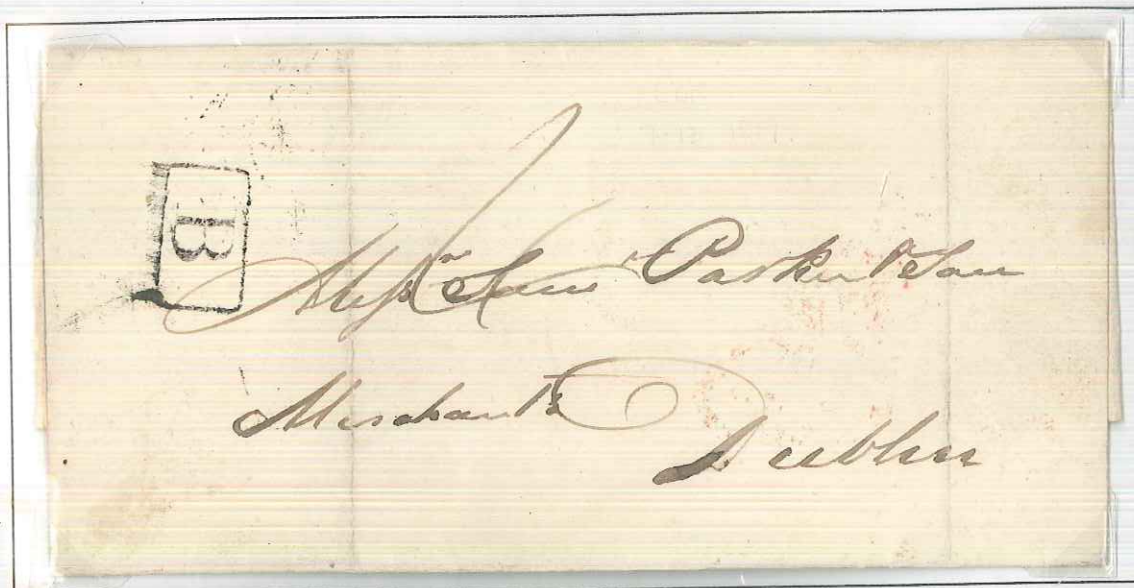 B
Messrs Parker & Son
Merchants
Dublin